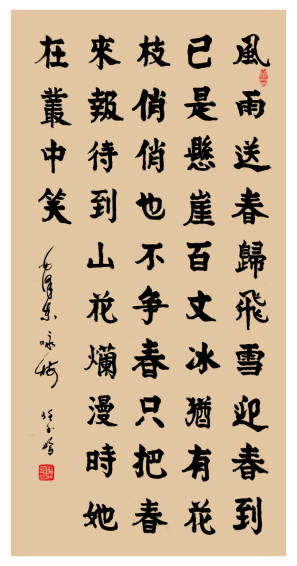 風雨送春歸飛雪迎春到
已是懸崖百丈冰猶有花
枝俏俏也不争春只把春
來報待到山花爛漫時她
在叢中笑
毛澤东咏梅